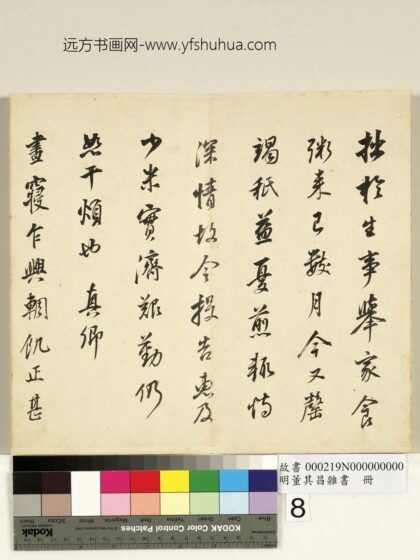 远方书画网-www.yfshuhua.com
拙於生事舉家食
粥来已數月今又罄
竭秖益憂煎輒恃
深情故令投告惠及
少米實濟艱勤仍
恕干煩也真卿
晝寢乍興輖飢正甚
故書 000219N000000000
明董其昌雜書 冊
8
KODAK Color Control Patches
Blue Cyan Green Yellow Red Magenta White 3/Color Black